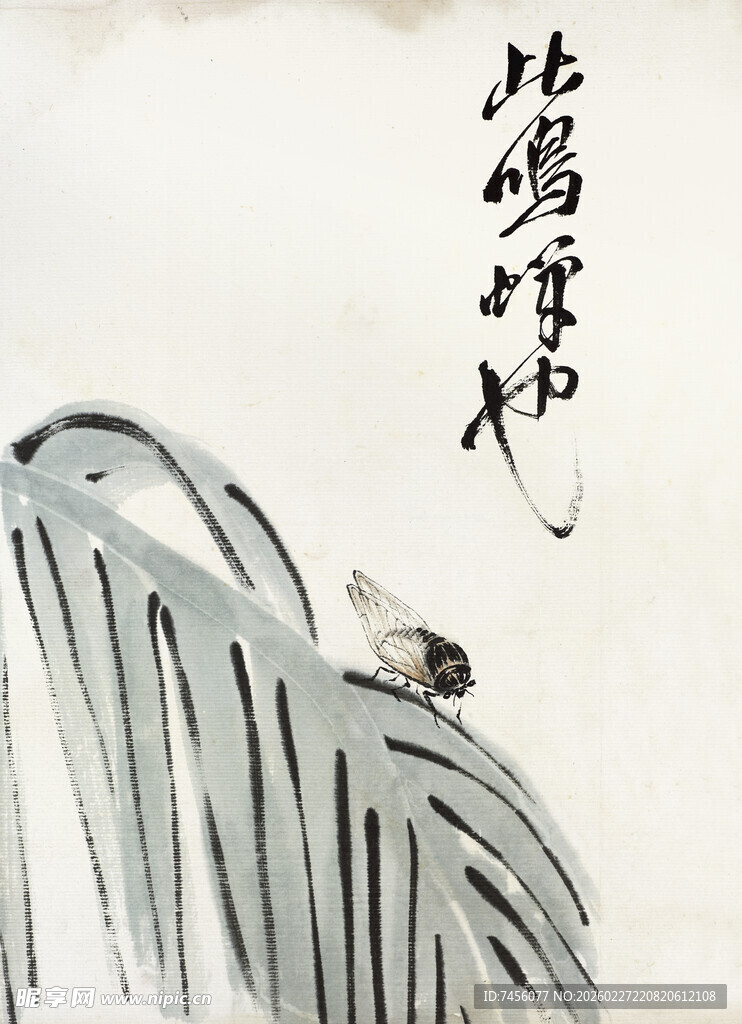 此鸣蝉也
昵享网 www.nipic.cn
ID:7456077 NO:20260227220820612108